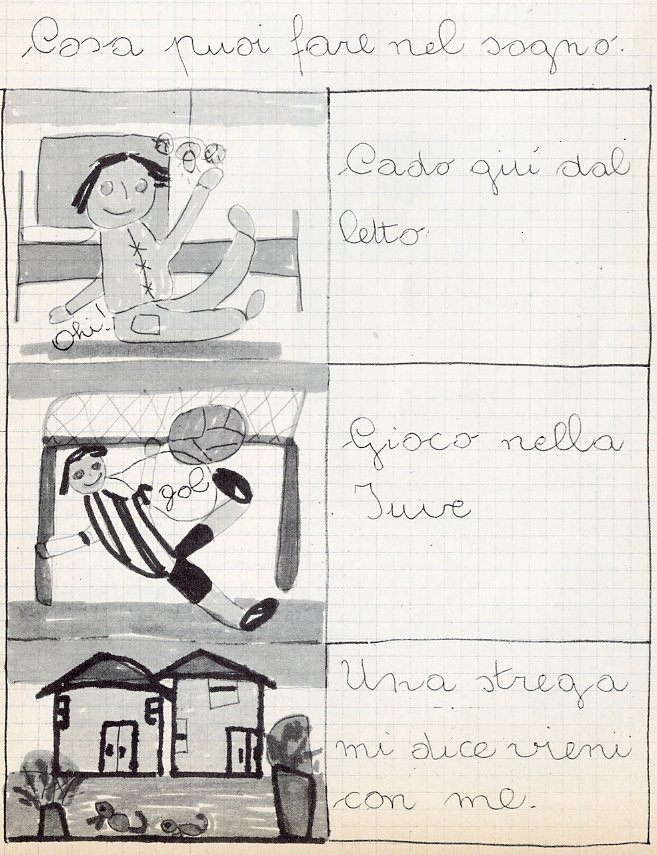 Cosa puoi fare nel sogno.
Cado giú dal
letto.
Ohi!
Gioco nella
Juve
gol
Una strega
mi dice vieni
con me.